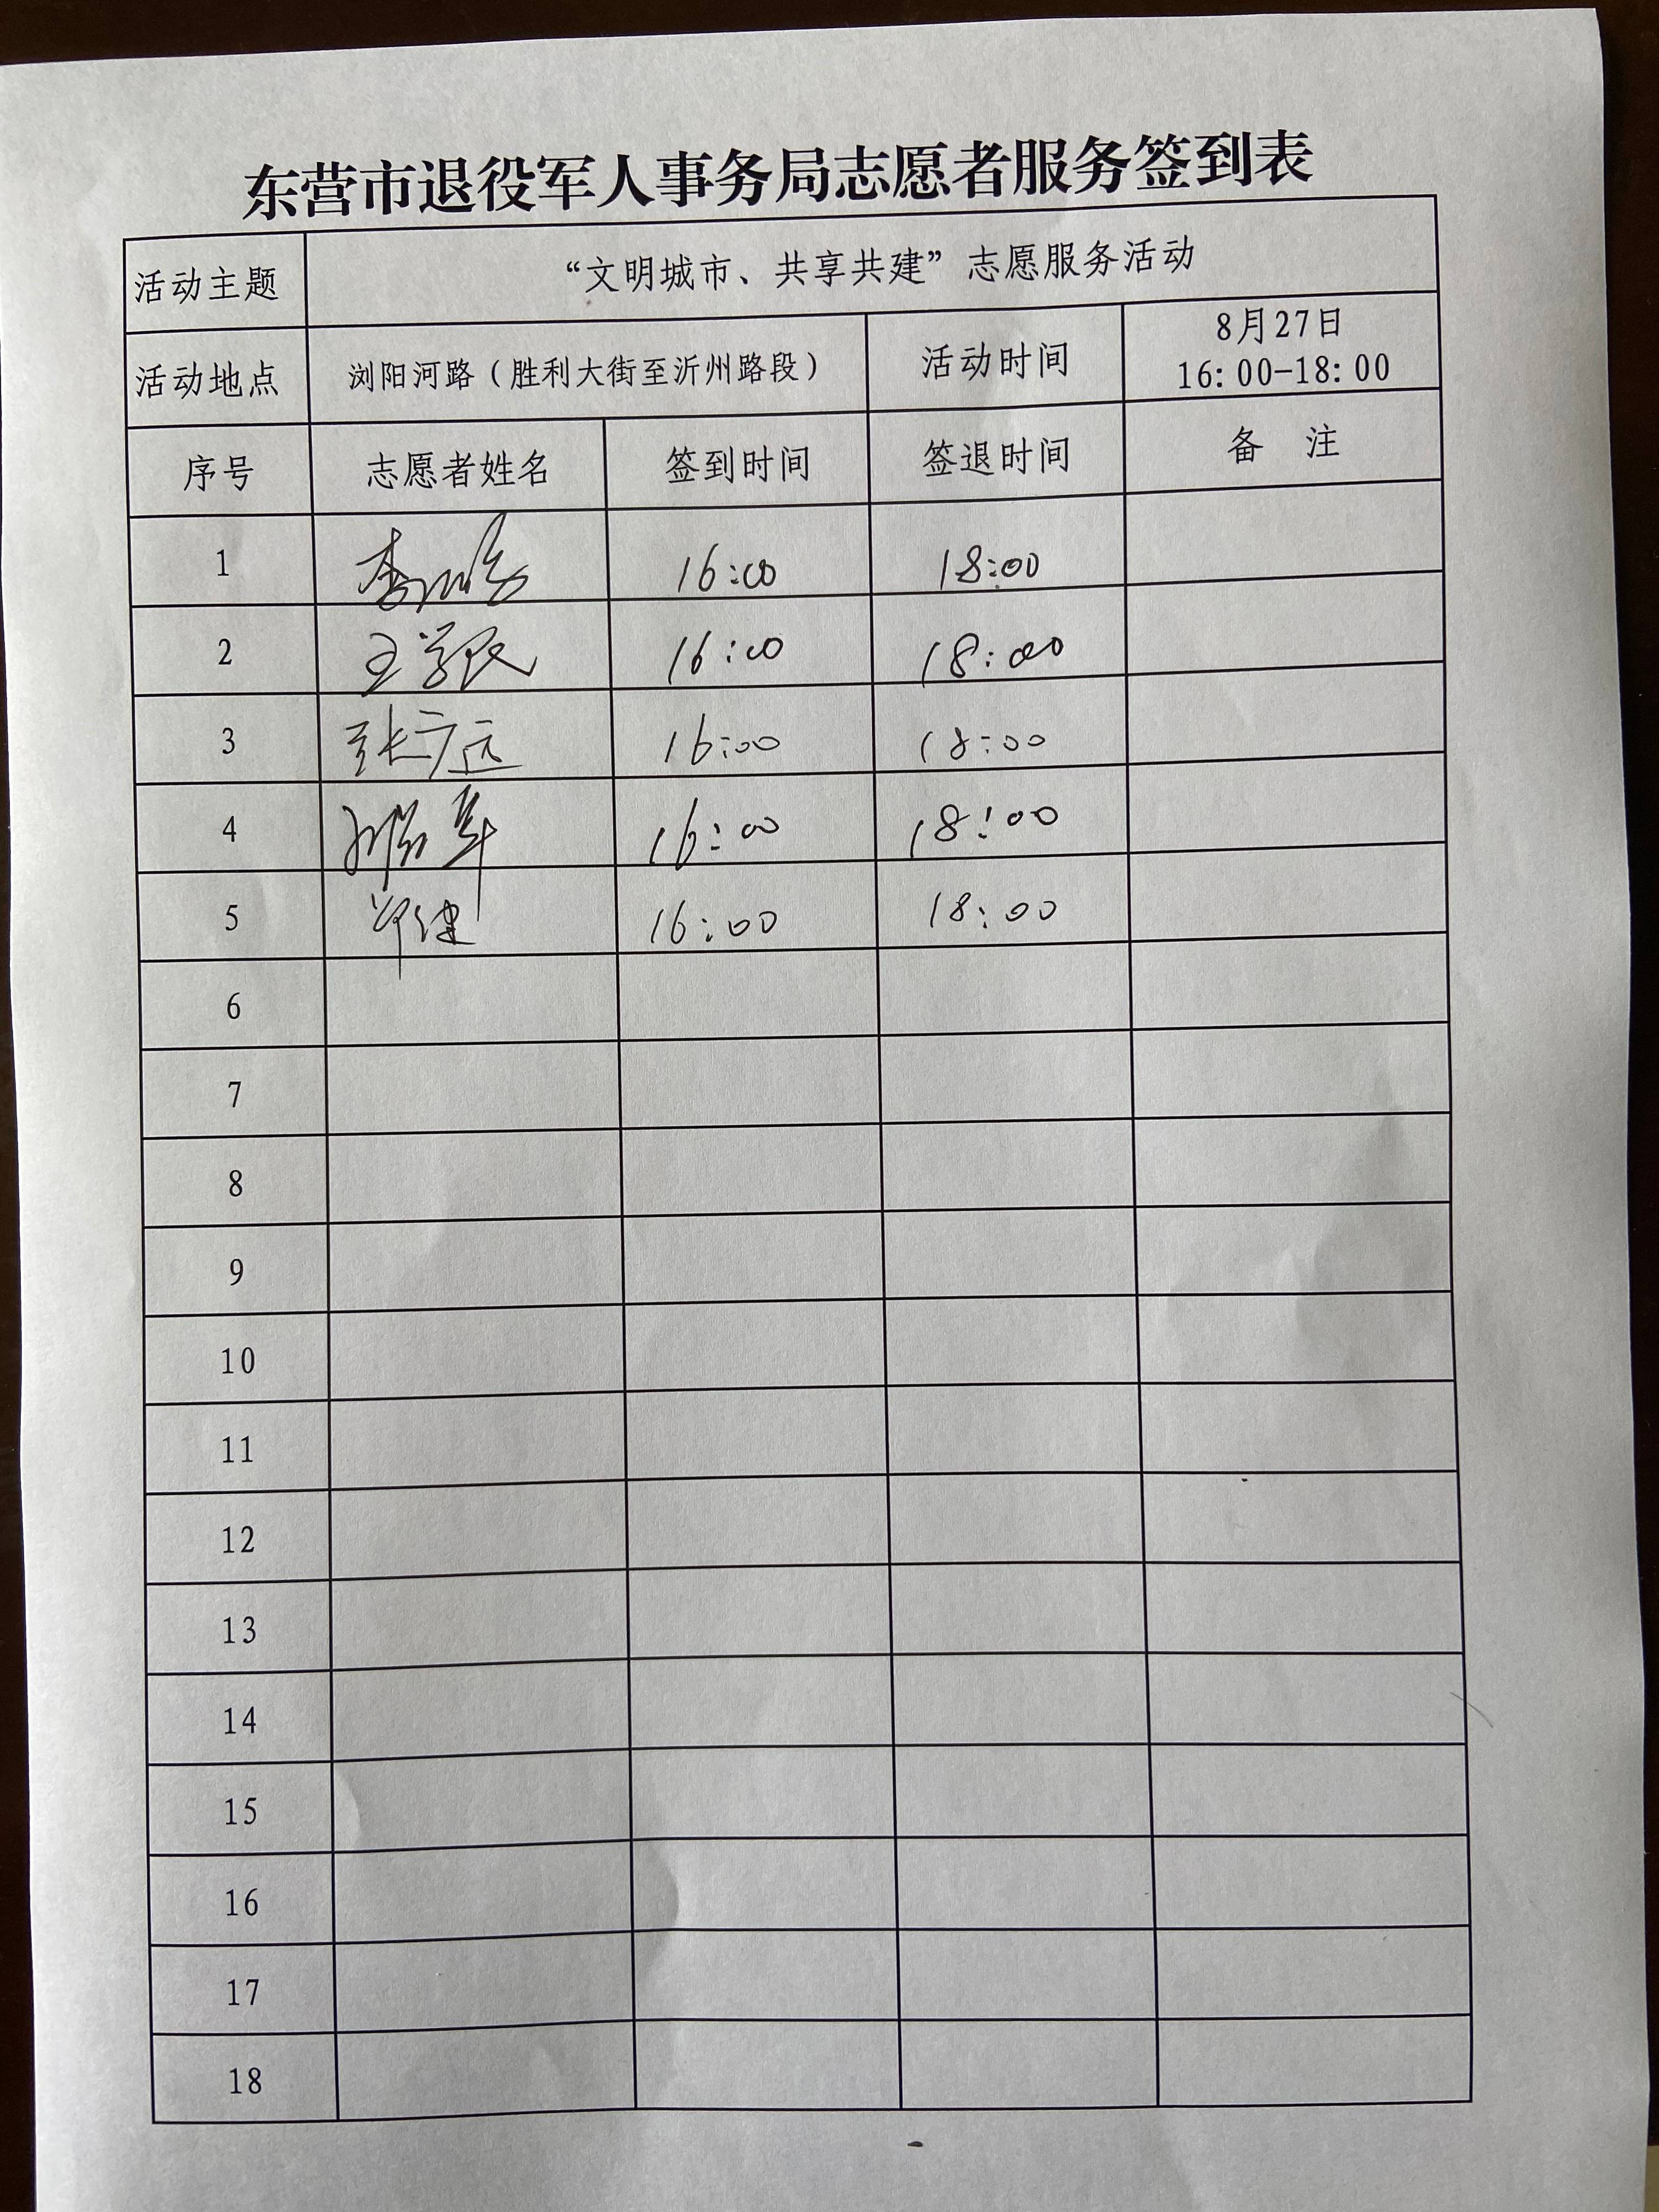 东营市退役军人事务局志愿者服务签到表
活动主题 “文明城市、共享共建”志愿服务活动
活动地点 浏阳河路（胜利大街至沂州路段） 活动时间 8月27日
16:00-18:00
序号 志愿者姓名 签到时间 签退时间 备 注
1 16:00 18:00
2 王学民 16:00 18:00
3 张广远 16:00 18:00
4 16:00 18:00
5 16:00 18:00
6
7
8
9
10
11
12
13
14
15
16
17
18